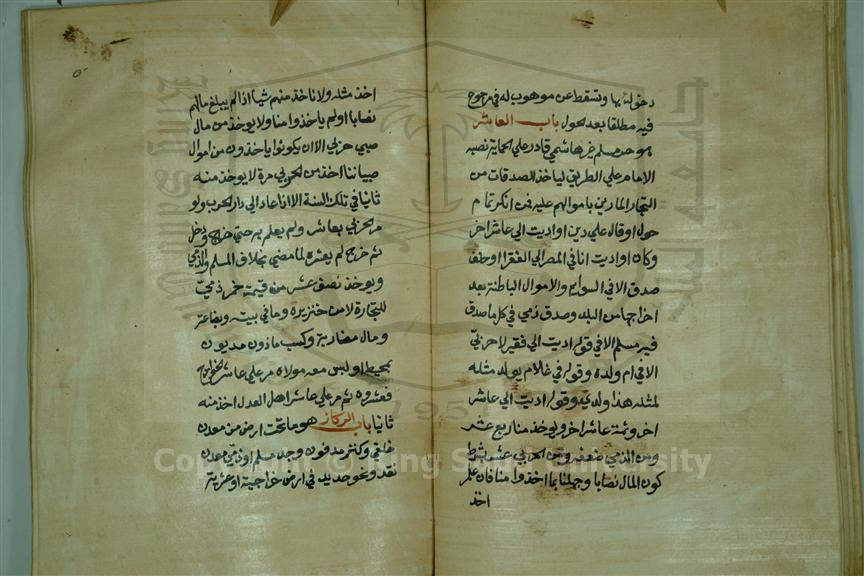 دخوله بها وتسقط عن موهوب له في مرجوع
فيه مطلقا بعد لحول باب العاشر
هو حر مسلم غير هاشمي قادر علي الحماية نصبه
الامام علي الطريق لياخذ الصدقات من
التجار المارين باموالهم عليه فمن انكر تمام
حول او قال علي دين او اديت الي عاشر اخر
وكان او اديت انا في المصر الي الفقرا وحلف
صدق الا في السوايم والاموال الباطنة بعد
اخراجها من البلد وصدق ذمي في كل ما صدق
فيه مسلم الا في قوله اديت الي فقير لا حربي
الا في ام ولده وقوله في غلام يولد مثله
لمثله هذا ولدي وقوله اديت الي عاشر
اخر وثمة عاشر اخر ويوخذ منا ربع عشر
ومن الذمي ضعفه ومن الحربي عشر بشرط
كون المال نصابا وجهلنا بما اخذوا منا فان علم
اخذ
اخذ مثله ولا ناخذ منهم شيا اذا لم يبلغ مالهم
نصابا او لم ياخذوا منا ولا يوخذ من مال
صبي حربي الا ان يكونوا ياخذون من اموال
صبياننا اخذ من الحربي مرة لا يوخذ منه
ثانيا في تلك السنة الا اذا عاد الي دار الحرب ولو
مر الحربي بعاشر ولم يعلم به حتي خرج ودخل
ثم خرج لم يعشره لما مضي بخلاف المسلم والذمي
ويوخذ نصف عشر من قيمة خمر ذمي
للتجارة لا من خنزيره وما في بيته وبضاعة
ومال مضاربة وكسب ماذون مديون
بمحيط او ليس معه مولاه مر علي عاشر الخوارج
فعشروه ثم مر علي عاشر اهل العدل اخذ منه
ثانيا باب الركاز هو ما تحت ارض من معدن
خلقي وكنز مدفون وجد مسلم او ذمي معدن
نقد ونحو حديد في ارض خراجية او عشرية
Copyright © King Saud University
1957